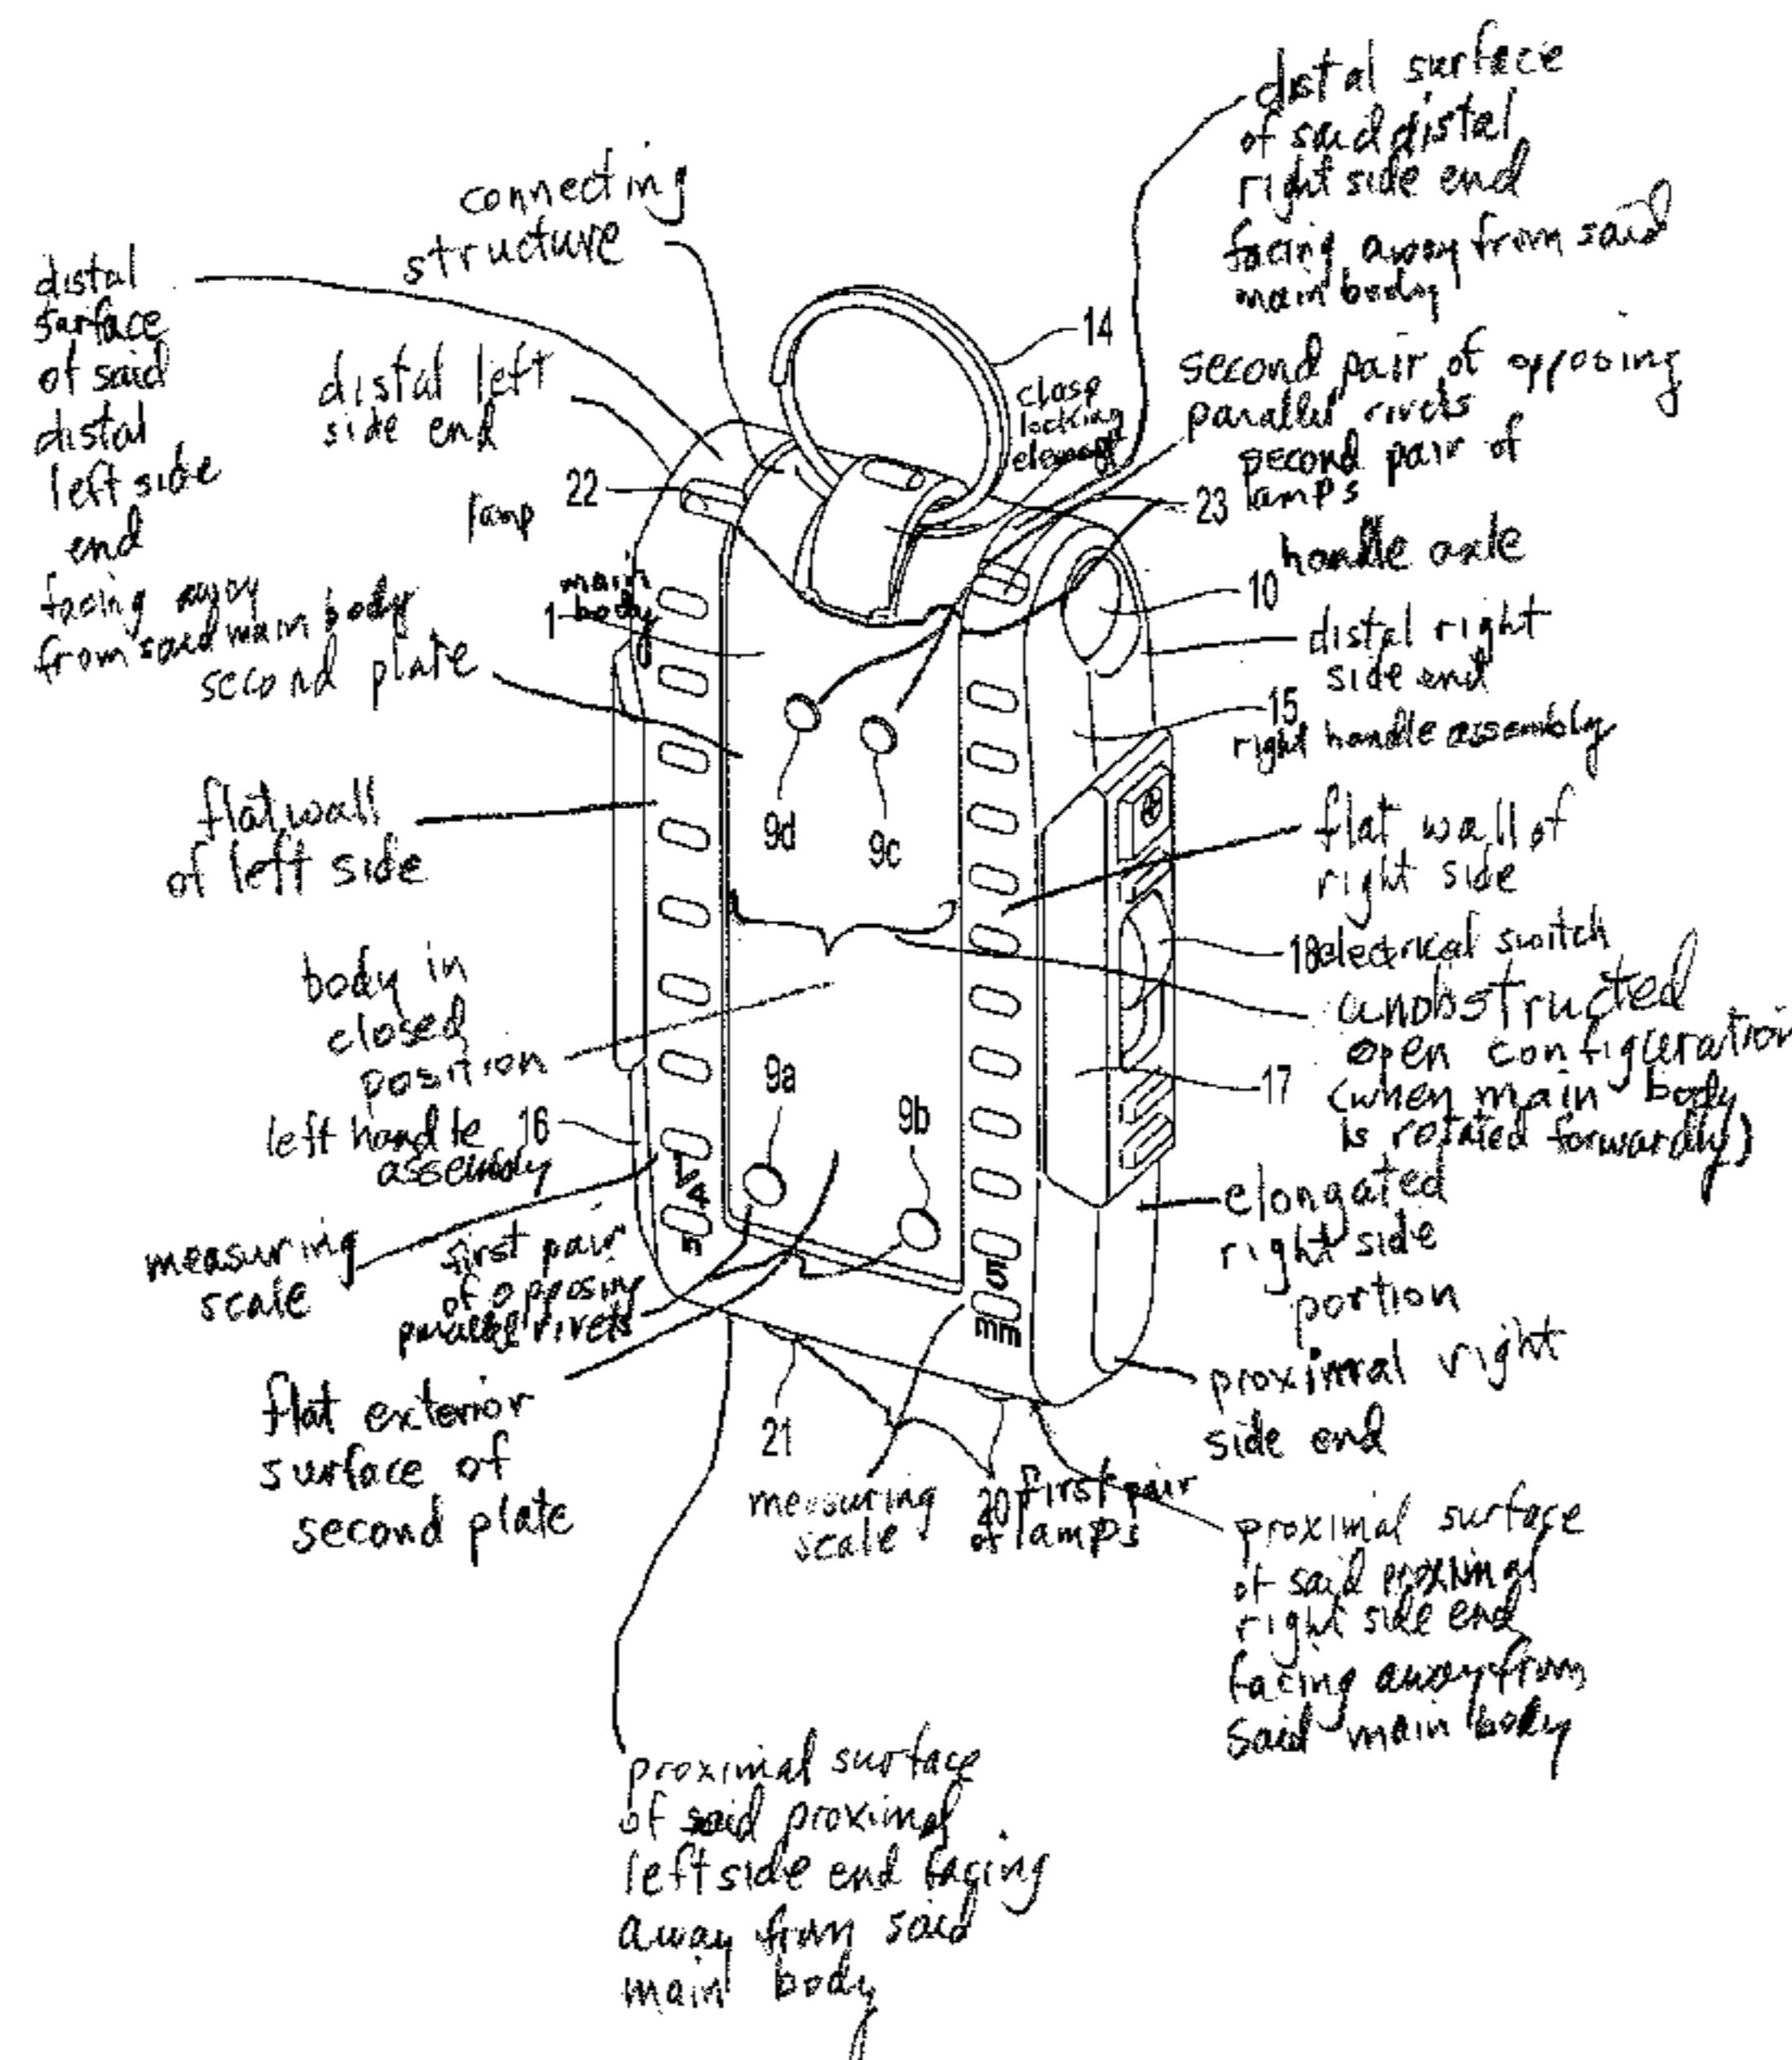 distal surface
of said distal
right side end
facing away from said
main body
connecting
structure
distal
surface
of said
distal
left side
end
facing away
from said main body
distal left
side end
14
clasp
locking
element
second pair of opposing
parallel rivets
second pair of
lamps
23
lamp
22
handle axle
10
main
body
1
distal right
side end
second plate
15
right handle assembly
flat wall
of left side
9d
9c
flat wall of
right side
18 electrical switch
body in
closed
position
unobstructed
open configuration
(when main body
is rotated forwardly)
17
9a
9b
left handle
assembly
16
4
in
5
mm
elongated
right side
portion
measuring
scale
first pair
of opposing
parallel rivets
proximal right
side end
flat exterior
surface of
second plate
21
measuring
scale
20 first pair
of lamps
proximal surface
of said proximal
right side end
facing away from
said main body
proximal surface
of said proximal
left side end facing
away from said
main body